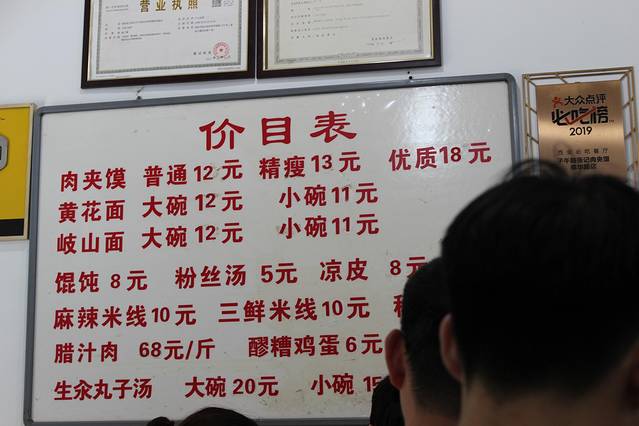 营业执照
价目表
肉夹馍 普通12元 精瘦13元 优质18元
黄花面 大碗12元 小碗11元
岐山面 大碗12元 小碗11元
馄饨 8元 粉丝汤 5元 凉皮 8元
麻辣米线10元 三鲜米线10元
腊汁肉 68元/斤 醪糟鸡蛋6元
生汆丸子汤 大碗20元 小碗15
大众点评
必吃榜
2019
西安必吃餐厅
子午路张记肉夹馍